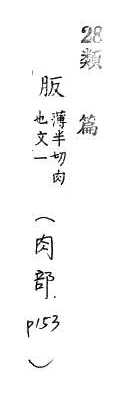 28類篇
䏽
薄半切肉
也文一
（肉部．p153）